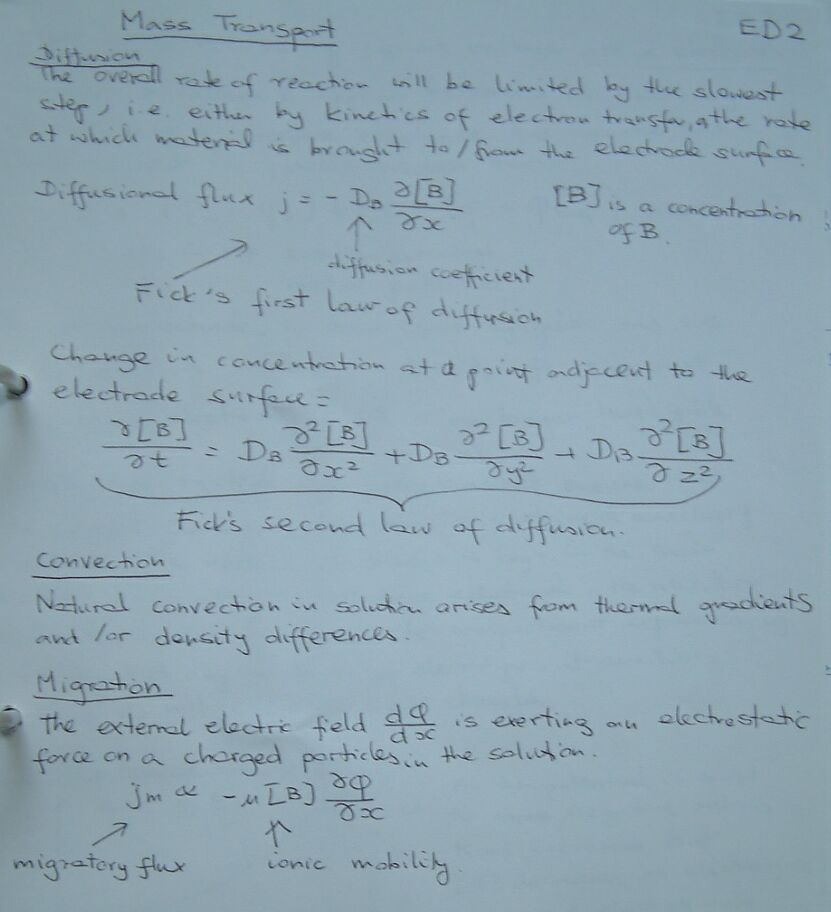 Mass Transport ED2
Diffusion
The overall rate of reaction will be limited by the slowest
step, i.e. either by kinetics of electron transfer, or the rate
at which material is brought to/from the electrode surface.
Diffusional flux j = - D_B ∂[B]/∂x [B] is a concentration
of B.
diffusion coefficient
Fick's first law of diffusion
Change in concentration at a point adjacent to the
electrode surface =
∂[B]/∂t = D_B ∂²[B]/∂x² + D_B ∂²[B]/∂y² + D_B ∂²[B]/∂z²
Fick's second law of diffusion.
Convection
Natural convection in solution arises from thermal gradients
and/or density differences.
Migration
The external electric field dφ/dx is exerting an electrostatic
force on a charged particles in the solution.
jm ∝ -μ[B] ∂φ/∂x
migratory flux ionic mobility.